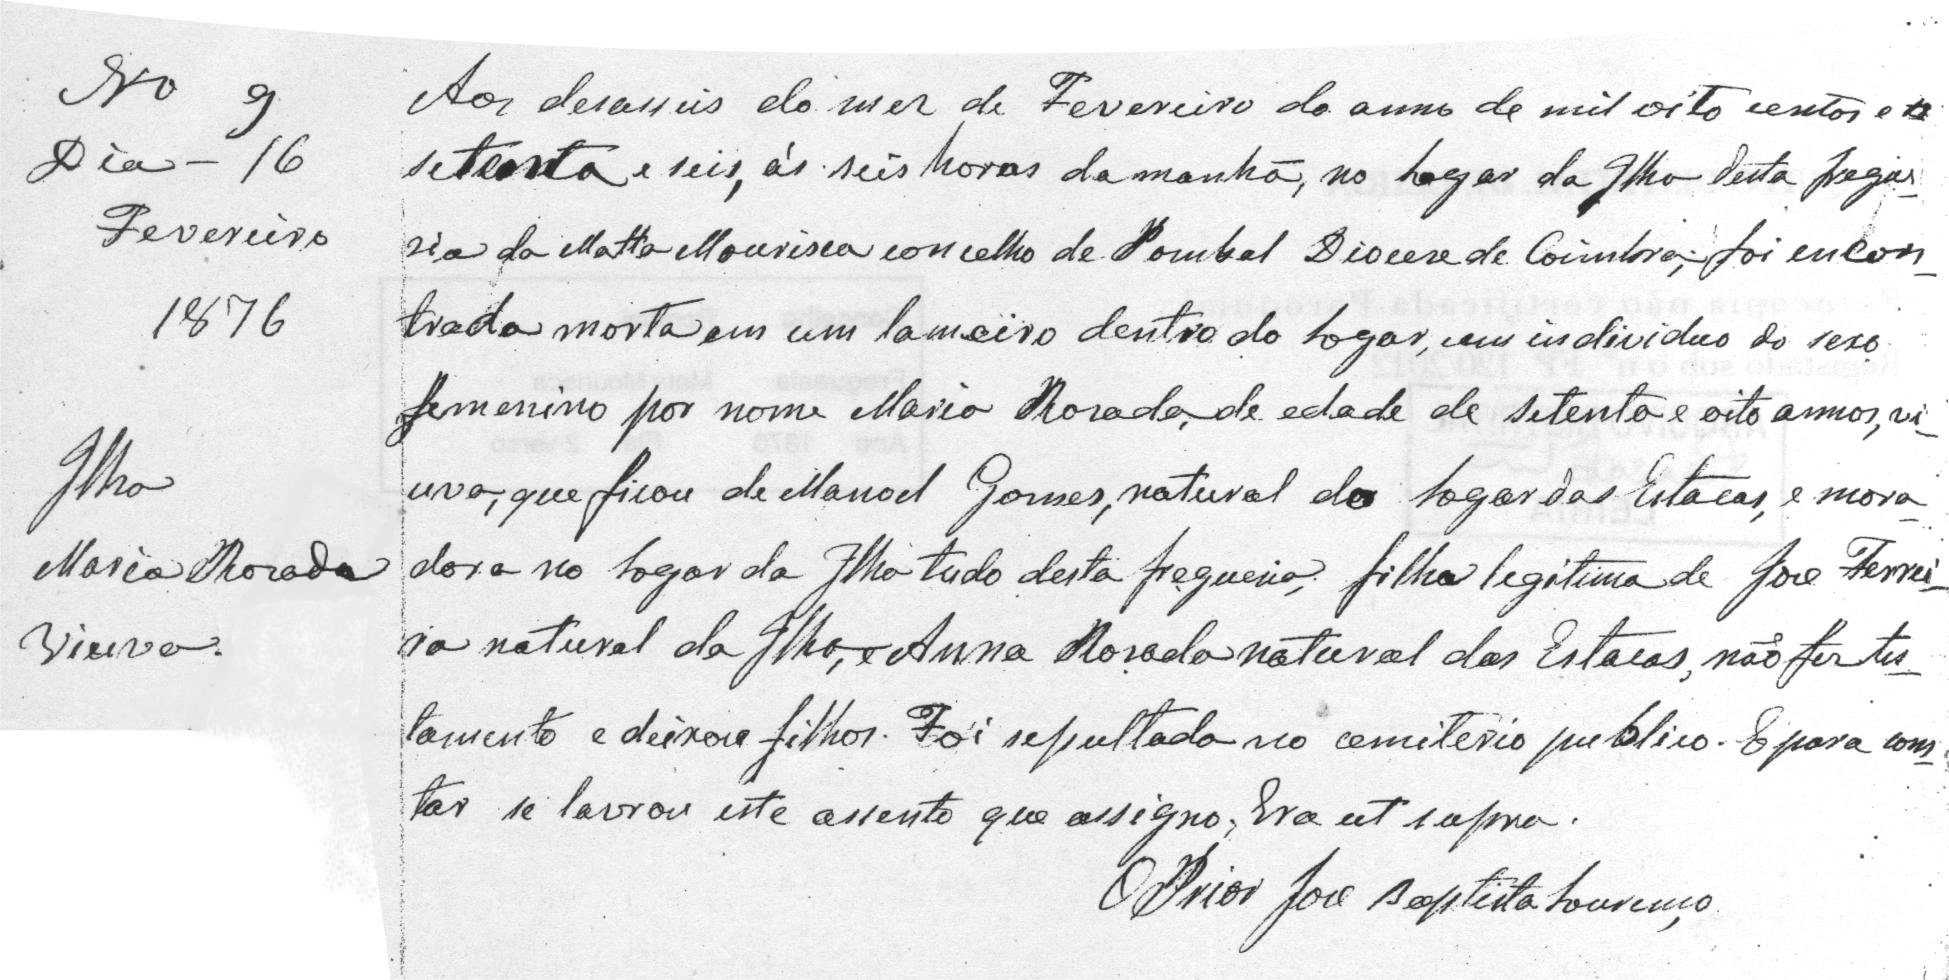 No 9
Dia - 16
Fevereiro
1876
Ilha
Maria Rosada
Viuva.
Aos desasseis do mez de Fevereiro do anno de mil oito centos e
setenta e seis, ás seis horas da manhã, no logar da Ilha desta fregue-
sia da Matta Mourisca concelho de Pombal Diocese de Coimbra, foi encon-
trada morta em um lameiro dentro do logar, um individuo do sexo
femenino por nome Maria Rosada, de edade de setenta e oito annos, vi-
uva, que ficou de Manoel Gomes, natural do logar das Estacas, e mora-
dora no logar da Ilha tudo desta freguesia, filha legitima de José Ferrei-
ra natural da Ilha, e Anna Rosada natural das Estacas, não fez tes-
tamento e deixou filhos. Foi sepultada no cemiterio publico. E para cons-
tar se lavrou este assento que assigno, Era ut supra.
O Prior José Baptista Lourenço